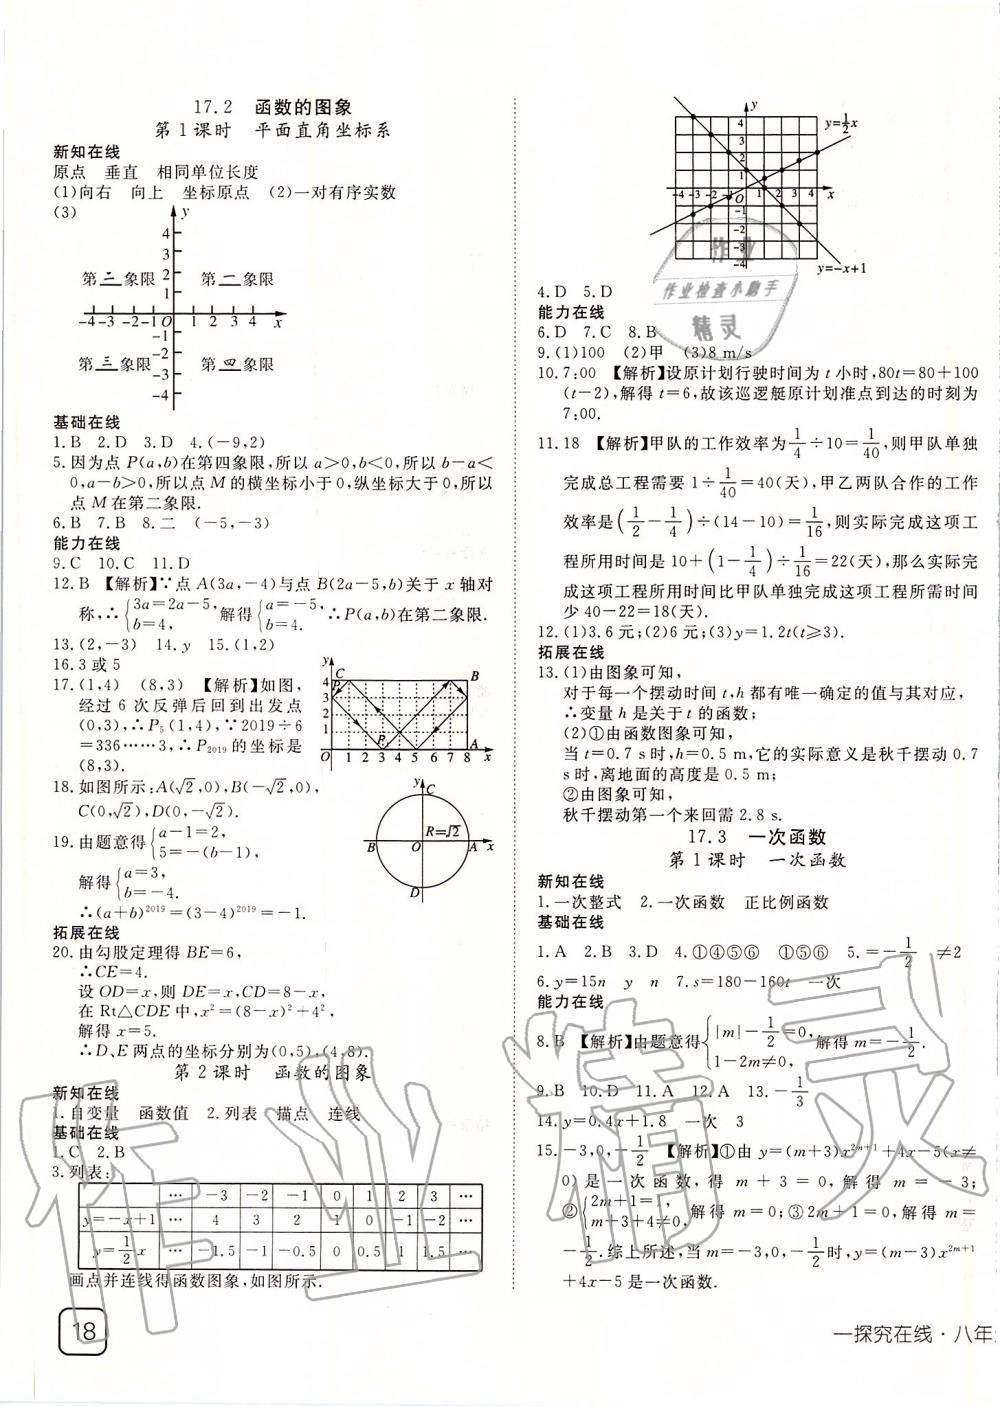 17.2 函数的图象
第1课时 平面直角坐标系
新知在线
原点 垂直 相同单位长度
(1)向右 向上 坐标原点 (2)一对有序实数
(3)
y
4
3
第二象限 2 第一象限
1
-4-3-2-1O 1 2 3 4 x
-1
-2
第三象限 -3 第四象限
-4
基础在线
1.B 2.D 3.D 4.(-9,2)
5.因为点P(a,b)在第四象限,所以a>0,b<0,所以b-a<
0,a-b>0,所以点M的横坐标小于0,纵坐标大于0,所以
点M在第二象限.
6.B 7.B 8.二 (-5,-3)
能力在线
9.C 10.C 11.D
12.B 【解析】∵点A(3a,-4)与点B(2a-5,b)关于x轴对
称,∴{3a=2a-5, b=4, 解得{a=-5, b=4, ∴P(a,b)在第二象限.
13.(2,-3) 14.y 15.(1,2)
16.3或5
17.(1,4) (8,3) 【解析】如图,
经过6次反弹后回到出发点
(0,3),∴P5(1,4),∵2019÷6
=336……3,∴P2019的坐标是
(8,3).
y
C B
4
P
3
2
1
P1 A
O 1 2 3 4 5 6 7 8 x
18.如图所示:A(√2,0),B(-√2,0),
C(0,√2),D(0,-√2).
19.由题意得{a-1=2, 5=-(b-1),
解得{a=3, b=-4.
∴(a+b)^2019=(3-4)^2019=-1.
y
C
R=√2
B O A x
D
拓展在线
20.由勾股定理得BE=6,
∴CE=4.
设OD=x,则DE=x,CD=8-x,
在Rt△CDE中,x²=(8-x)²+4²,
解得x=5.
∴D,E两点的坐标分别为(0,5),(4,8).
第2课时 函数的图象
新知在线
1.自变量 函数值 2.列表 描点 连线
基础在线
1.C 2.B
3.列表:
… -3 -2 -1 0 1 2 3 …
y=-x+1 … 4 3 2 1 0 -1 -2 …
y=1/2x … -1.5 -1 -0.5 0 0.5 1 1.5 …
画点并连线得函数图象,如图所示.
18
y
4
3
2
1
y=1/2x
-4-3-2-1 O 1 2 3 4 x
-1
-2
-3
-4
y=-x+1
作业
作业检查小助手
精灵
4.D 5.D
能力在线
6.D 7.C 8.B
9.(1)100 (2)甲 (3)8 m/s
10.7:00 【解析】设原计划行驶时间为t小时,80t=80+100
(t-2),解得t=6,故该巡逻艇原计划准点到达的时刻为
7:00.
11.18 【解析】甲队的工作效率为1/4÷10=1/40,则甲队单独
完成总工程需要1÷1/40=40(天),甲乙两队合作的工作
效率是(1/2-1/4)÷(14-10)=1/16,则实际完成这项工
程所用时间是10+(1-1/4)÷1/16=22(天),那么实际完
成这项工程所用时间比甲队单独完成这项工程所需时间
少40-22=18(天).
12.(1)3.6元;(2)6元;(3)y=1.2t(t≥3).
拓展在线
13.(1)由图象可知,
对于每一个摆动时间t,h都有唯一确定的值与其对应,
∴变量h是关于t的函数;
(2)①由函数图象可知,
当t=0.7 s时,h=0.5 m,它的实际意义是秋千摆动0.7
s时,离地面的高度是0.5 m;
②由图象可知,
秋千摆动第一个来回需2.8 s.
17.3 一次函数
第1课时 一次函数
新知在线
1.一次整式 2.一次函数 正比例函数
基础在线
1.A 2.B 3.D 4.①④⑤⑥ ①⑤⑥ 5.=-1/2 ≠2
6.y=15n y n 7.s=180-160t 一次
能力在线
8.B 【解析】由题意得{|m|-1/2=0, 1-2m≠0, 解得m=-1/2.
9.B 10.D 11.A 12.A 13.-1/3
14.y=0.4x+1.8 一次 3
15.-3,0,-1/2 【解析】①由y=(m+3)x^2m+1+4x-5(x≠
0)是一次函数,得m+3=0,解得m=-3;
②{2m+1=1, m+3+4≠0; ③2m+1=0,解得m=
-1/2.综上所述,当m=-3,0,-1/2时,y=(m-3)x^2m+1
+4x-5是一次函数.
一探究在线·八年
作业精灵